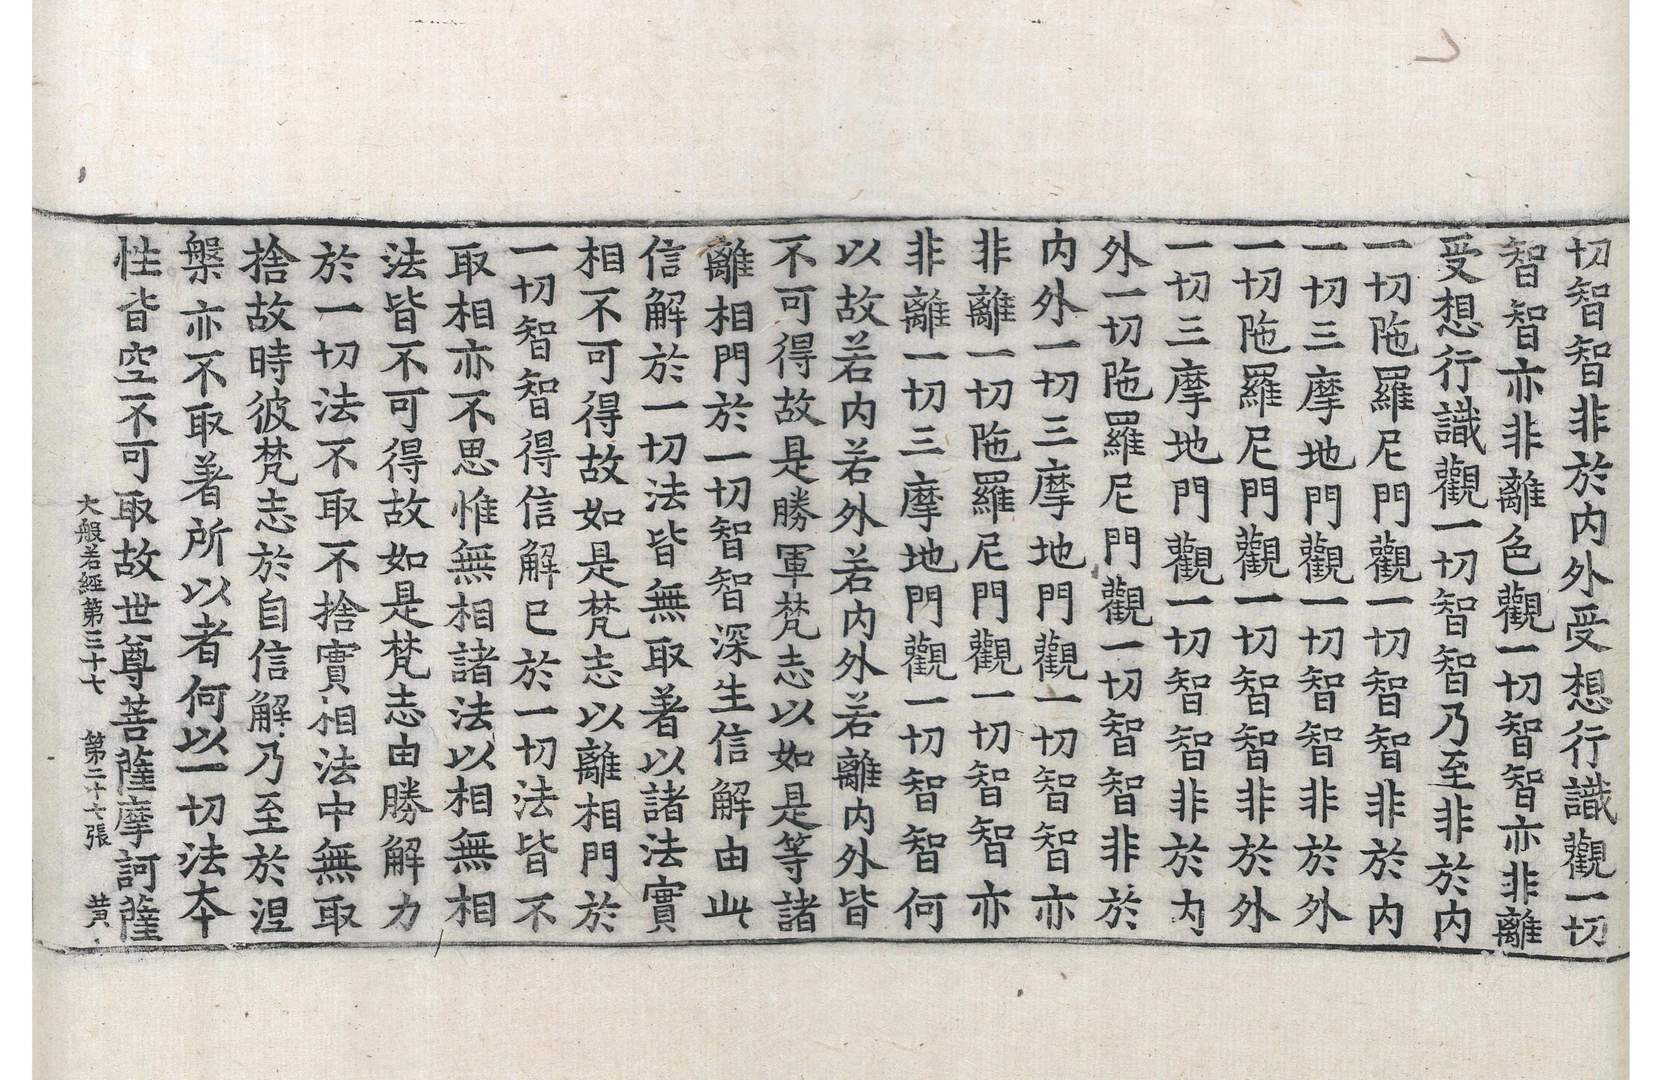 切智智非於内外受想行識觀一切
智智亦非離色觀一切智智亦非離
受想行識觀一切智智乃至非於内
一切陁羅尼門觀一切智智非於内
一切三摩地門觀一切智智非於外
一切陁羅尼門觀一切智智非於外
一切三摩地門觀一切智智非於内
外一切陁羅尼門觀一切智智非於
内外一切三摩地門觀一切智智亦
非離一切陁羅尼門觀一切智智亦
非離一切三摩地門觀一切智智何
以故若内若外若内外若離内外皆
不可得故是勝軍梵志以如是等諸
離相門於一切智智深生信解由此
信解於一切法皆無取著以諸法實
相不可得故如是梵志以離相門於
一切智智得信解已於一切法皆不
取相亦不思惟無相諸法以相無相
法皆不可得故如是梵志由勝解力
於一切法不取不捨實相法中無取
捨故時彼梵志於自信解乃至於涅
槃亦不取著所以者何以一切法本
性皆空不可取故世尊菩薩摩訶薩
大般若經第三十七 第二十七張 黄